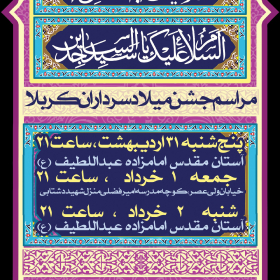 السلام علیک یا
مراسم جشن میلاد سرداران کربلا
پنج شنبه ۳۱ اردیبهشت، ساعت ۲۱
آستان مقدس امامزاده عبداللطیف (ع)
جمعه ۱ خرداد ، ساعت ۲۱
خیابان ولی عصر کوچه مدرسه امیرفضلی منزل شهید دشتابی
شنبه ۲ خرداد ، ساعت ۲۱
آستان مقدس امامزاده عبداللطیف (ع)